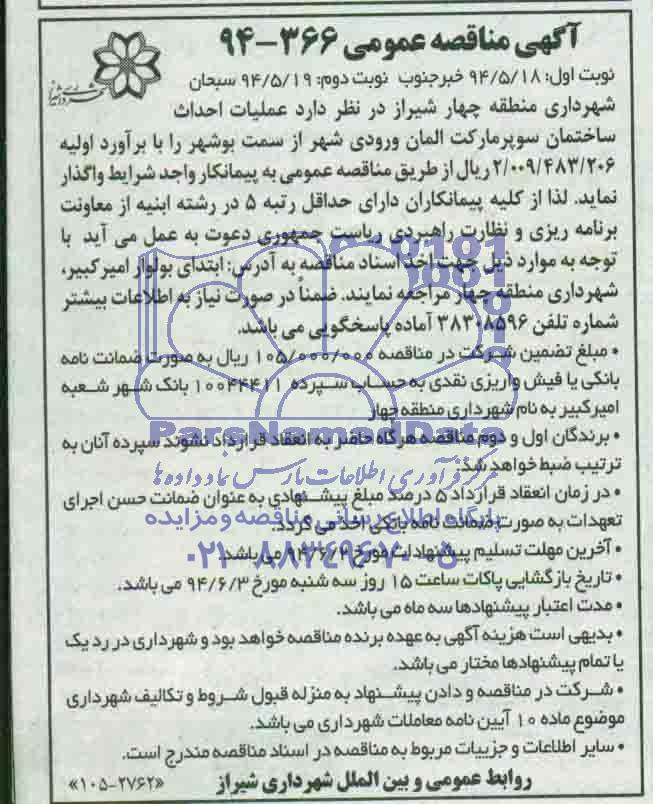 آگهی مناقصه عمومی ۳۶۶-۹۴
نوبت اول: ۹۴/۵/۱۸ خبرجنوب نوبت دوم: ۹۴/۵/۱۹ سبحان
شهرداری منطقه چهار شیراز در نظر دارد عملیات احداث
ساختمان سوپرمارکت المان ورودی شهر از سمت بوشهر را با برآورد اولیه
۲/۰۰۹/۴۸۳/۲۰۶ ریال از طریق مناقصه عمومی به پیمانکار واجد شرایط واگذار
نماید. لذا از کلیه پیمانکاران دارای حداقل رتبه ۵ در رشته ابنیه از معاونت
برنامه ریزی و نظارت راهبردی ریاست جمهوری دعوت به عمل می آید با
توجه به موارد ذیل جهت اخذ اسناد مناقصه به آدرس: ابتدای بولوار امیرکبیر،
شهرداری منطقه چهار مراجعه نمایند. ضمناً در صورت نیاز به اطلاعات بیشتر
شماره تلفن ۳۸۳۰۸۵۹۶ آماده پاسخگویی می باشد.
• مبلغ تضمین شرکت در مناقصه ۱۰۵/۰۰۰/۰۰۰ ریال به صورت ضمانت نامه
بانکی یا فیش واریزی نقدی به حساب سپرده ۱۰۰۴۴۴۱۱ بانک شهر شعبه
امیرکبیر به نام شهرداری منطقه چهار
ParsNamadData
• برندگان اول و دوم مناقصه هرگاه حاضر به انعقاد قرارداد نشوند سپرده آنان به
ترتیب ضبط خواهد شد.
مرکز فرآوری اطلاعات پارس نماد داده ها
• در زمان انعقاد قرارداد ۵ درصد مبلغ پیشنهادی به عنوان ضمانت حسن اجرای
تعهدات به صورت ضمانت نامه بانکی اخذ می گردد.
پایگاه اطلاع رسانی مناقصه و مزایده
• آخرین مهلت تسلیم پیشنهادات مورخ ۹۴/۶/۲ می باشد.
۰۲۱-۸۸۳۴۹۶۷۰-۵
• تاریخ بازگشایی پاکات ساعت ۱۵ روز سه شنبه مورخ ۹۴/۶/۳ می باشد.
• مدت اعتبار پیشنهادها سه ماه می باشد.
• بدیهی است هزینه آگهی به عهده برنده مناقصه خواهد بود و شهرداری در رد یک
یا تمام پیشنهادها مختار می باشد.
• شرکت در مناقصه و دادن پیشنهاد به منزله قبول شروط و تکالیف شهرداری
موضوع ماده ۱۰ آیین نامه معاملات شهرداری می باشد.
• سایر اطلاعات و جزییات مربوط به مناقصه در اسناد مناقصه مندرج است.
روابط عمومی و بین الملل شهرداری شیراز «۱۰۵-۲۷۶۲»